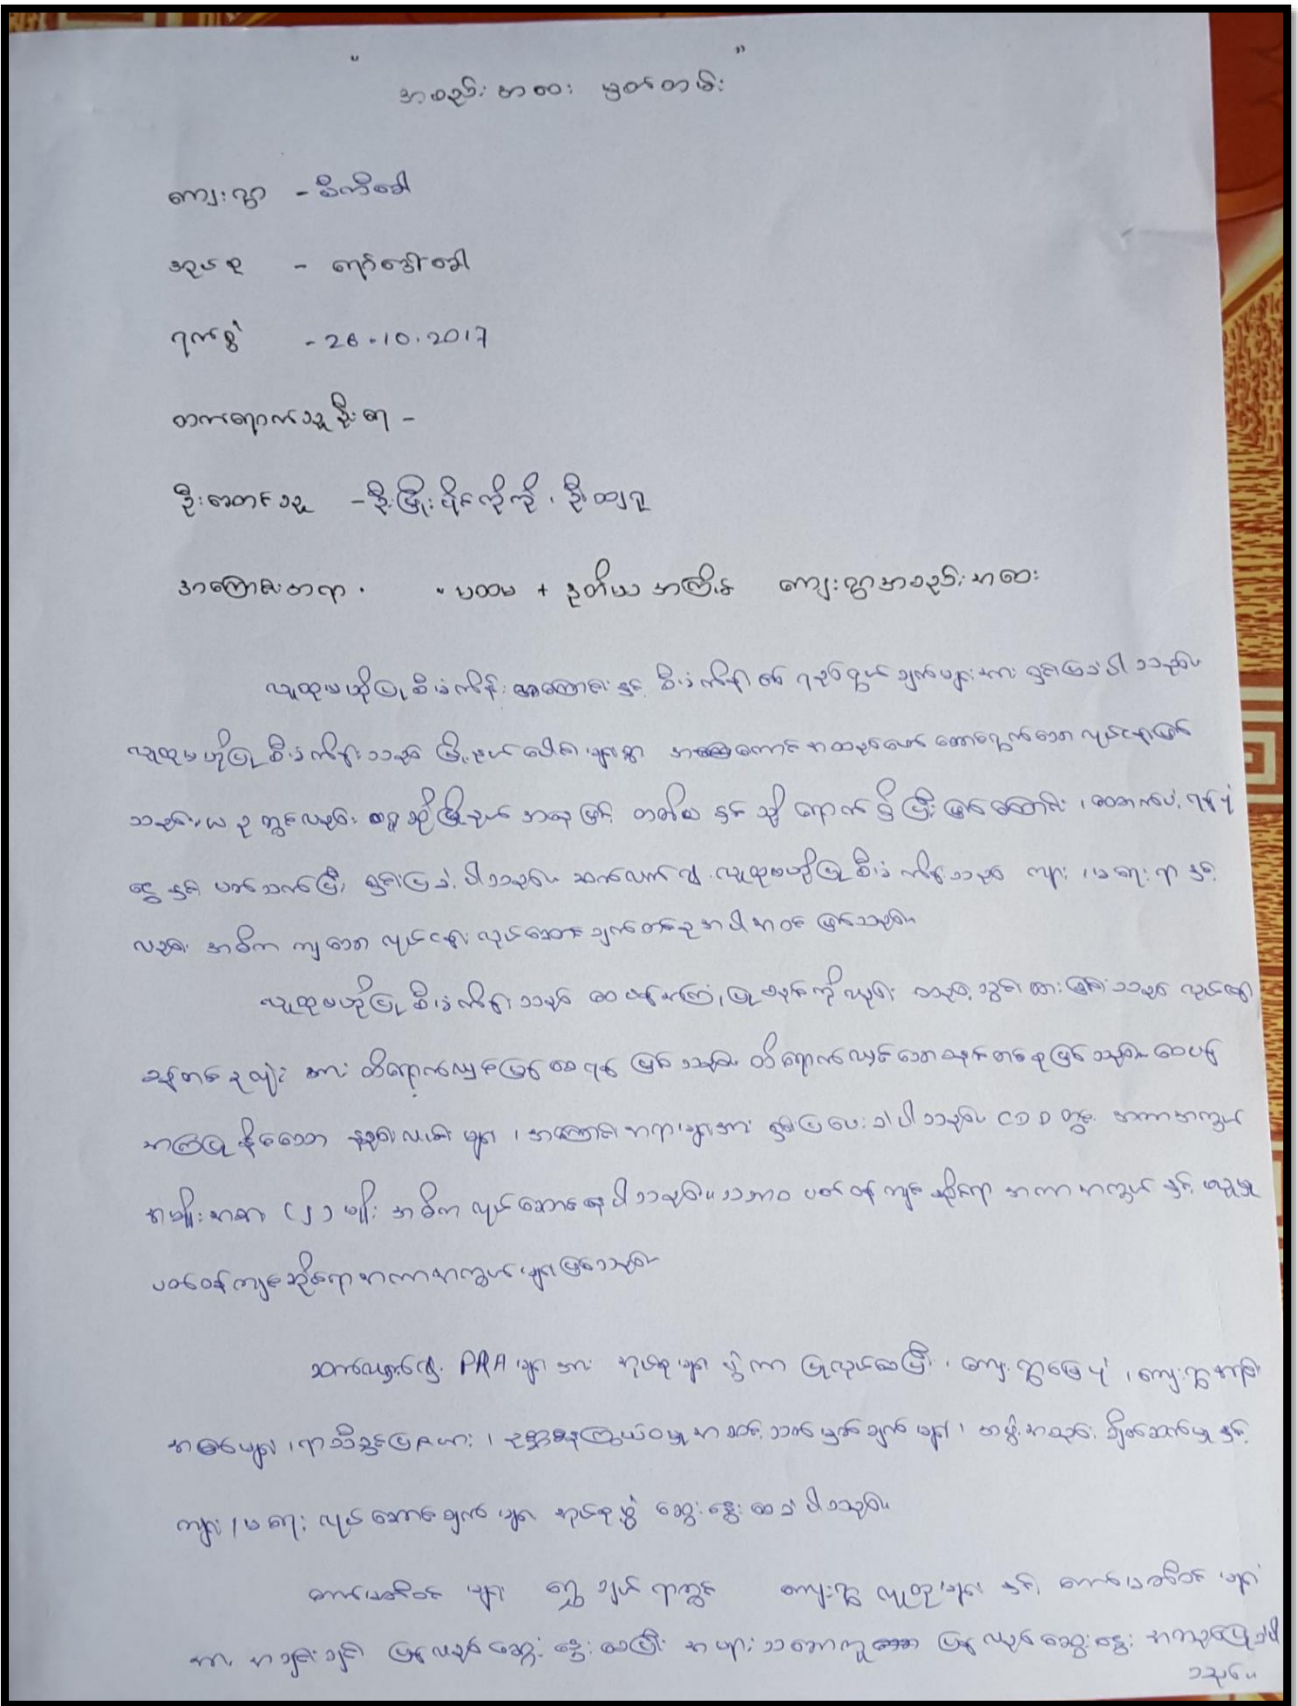 "အစည်းအဝေး မှတ်တမ်း"
ကျေးရွာ -
အုပ်စု -
ရက်စွဲ - 26.10.2017
တက်ရောက်သူဦးရေ -
ဦးဆောင်သူ - ဦးဖြိုးပိုင်ကိုကို၊
အကြောင်းအရာ - ပထမ + ဒုတိယ အကြိမ် ကျေးရွာအစည်းအဝေး
လူထုပဟိုပြု စီမံကိန်း အကြောင်းနှင့် စီမံကိန်း၏ ရည်ရွယ်ချက်များအား ရှင်းပြခဲ့ပါသည်။
လူထုပဟိုပြု စီမံကိန်းသည် မြို့နယ်ပေါင်းများစွာ အကောင်အထည်ဖော် ဆောင်ရွက်သော လုပ်ငန်းဖြစ်
သည်။ ယခုတွင်လည်း မြို့နယ် အနေဖြင့် တတိယ နှစ်သို့ ရောက်ရှိပြီး ဖြစ်ကြောင်း၊ ထောက်ပံ့ ရန်ပုံ
ငွေ နှင့် ပတ်သက်ပြီး ရှင်းပြခဲ့ပါသည်။ ဆက်လက်၍ လူထုပဟိုပြု စီမံကိန်းသည် ကျား / မ ရေးရာ နှင့်
လည်း အဓိက ကျသော လုပ်ငန်း လုပ်ဆောင်ချက်တစ်ခု အပါအဝင် ဖြစ်သည်။
လူထုပဟိုပြု စီမံကိန်းသည် ဝေဖန်အကြံပြုစနစ်ကိုလည်း ထည့်သွင်းထားခြင်းသည် လုပ်ငန်း
စဉ်တစ်ခုလုံးအား ထိရောက်လျှင်မြန်စေရန် ဖြစ်သည်။ ထိရောက်လျှင်သောစနစ်တစ်ခုဖြစ်သည်။ ဝေဖန်
အကြံပြုနိုင်သော နည်းလမ်းများ၊ အကြောင်းအရာများအား ရှင်းပြပေးခဲ့ပါသည်။ CDD တွင် အကာအကွယ်
အမျိုးအစား (၂) မျိုး အဓိက လုပ်ဆောင်နေပါသည်။ သဘာဝ ပတ်ဝန်းကျင် ဆိုင်ရာ အကာအကွယ် နှင့် လူမှု
ပတ်ဝန်းကျင်ဆိုင်ရာ အကာအကွယ် များဖြစ်သည်။
ဆက်လက်၍ PRA များအား အုပ်စုများ ခွဲကာ ပြုလုပ်စေပြီး၊ ကျေးရွာမြေပုံ၊ ကျေးရွာသမိုင်း
အခြေများ၊ ရာသီခွင်ပြဇယား၊ ချမ်းသာကြွယ်ဝမှု အဆင့်သတ်မှတ်ချက်များ၊ အဖွဲ့အစည်း ချိတ်ဆက်မှု နှင့်
ကျား / မ ရေး လုပ်ဆောင်ချက်များ အုပ်စုဖွဲ့ ဆွေးနွေးစေခဲ့ပါသည်။
ကော်မတီဝင် များ ရွေးချယ်ရာတွင် ကျေးရွာ လူထုများ နှင့် ကော်မတီဝင်များ
အား အချင်းချင်း ပြန်လည်ဆွေးနွေးစေပြီး အများသဘောတူ ပြန်လည်ဆွေးနွေး အတည်ပြုခဲ့ပါ
သည်။